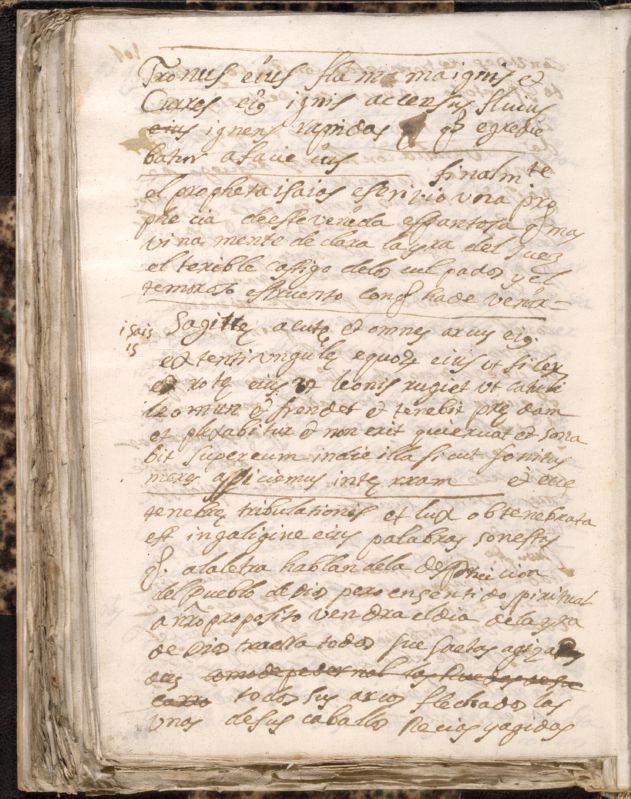 Tronus eius flamma ignis et
Currus eiꝰ ignis accensus fluuius
eius igneus rapidus qꝫ egredie
batur a facie eius finalmte
el propheta isaias escrivio una pro
phecia de este verdad espantosa q mas
vina mente declara la yra del juez
el terible castigo de los culpados y el
temoroso estruento con q ha de venir
isais Sagittę acutę et omnes arcus eiꝰ
15 extenti vngulę equorū eius ut silex
et rotę eius leonis rugiet ut catuli
leonum et frendet et tenebit prędam
et plexabitur et non erit qui eruat et sona
bit super eum in die illa sicut sonitus
maris aspiciemus in terram et ecce
tenebrę tribulationis et lux obtenebrata
est in galigine eius palabras son estas
q a la letra hablan de la
del pueblo de Dios pero en sentido spiritual
a nro proposito vendra el dia de la yra
de Dios traera todas sus saetas aguza
das como de pedernal las
carro todos sus arcos flechados las
unas de sus caballos Recias y agudas